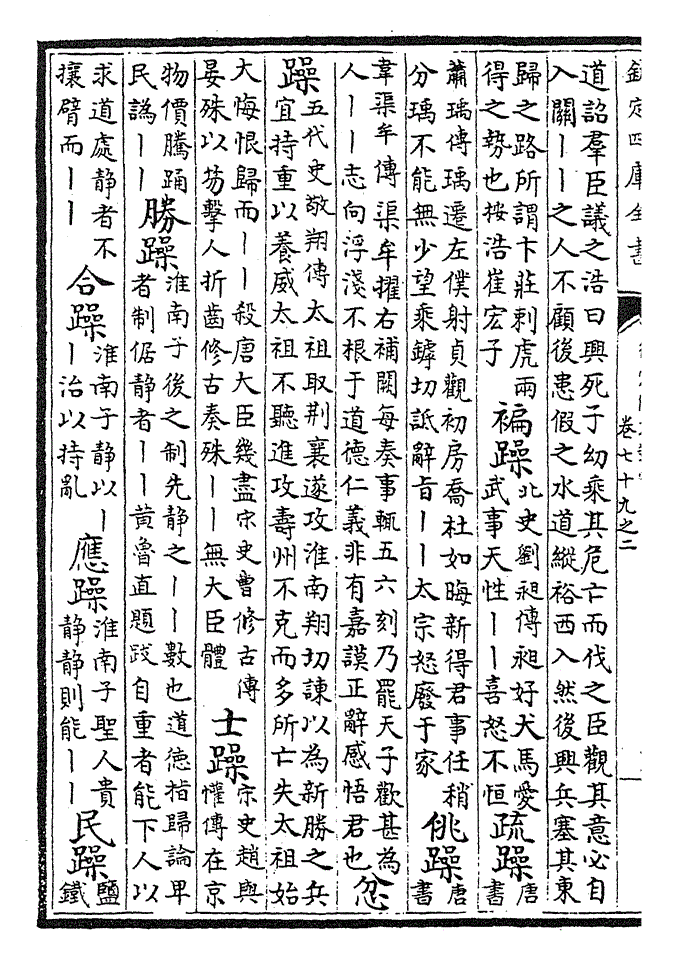 欽定四庫全書
卷七十九之二
道詔羣臣議之浩曰興死子幼乘其危亡而伐之臣觀其意必自
入關丨丨之人不顧後患假之水道縱裕西入然後興兵塞其東
歸之路所謂卞莊刺虎兩
得之勢也按浩崔宏子
褊躁
北史劉昶傳昶好犬馬愛
武事天性丨丨喜怒不恒
疏躁
唐
書
蕭瑀傳瑀遷左僕射貞觀初房喬杜如晦新得君事任稍
分瑀不能無少望乘罅切詆辭旨丨丨太宗怒廢于家
佻躁
唐
書
韋渠牟傳渠牟擢右補闕每奏事輒五六刻乃罷天子歡甚為
人丨丨志向浮淺不根于道德仁義非有嘉謨正辭感悟君也
忿
躁
五代史敬翔傳太祖取荆襄遂攻淮南翔切諫以為新勝之兵
宜持重以養威太祖不聽進攻壽州不克而多所亡失太祖始
大悔恨歸而丨丨殺唐大臣幾盡宋史曹修古傳
晏殊以笏擊人折齒修古奏殊丨丨無大臣體
士躁
宋史趙與
懽傳在京
物價騰踊
民譌丨丨
勝躁
淮南子後之制先静之丨丨數也道德指歸論卑
者制倨静者丨丨黄魯直題跋自重者能下人以
求道處静者不
攘臂而丨丨
合躁
淮南子静以丨
丨治以持亂
應躁
淮南子聖人貴
静静則能丨丨
民躁
鹽
鐵